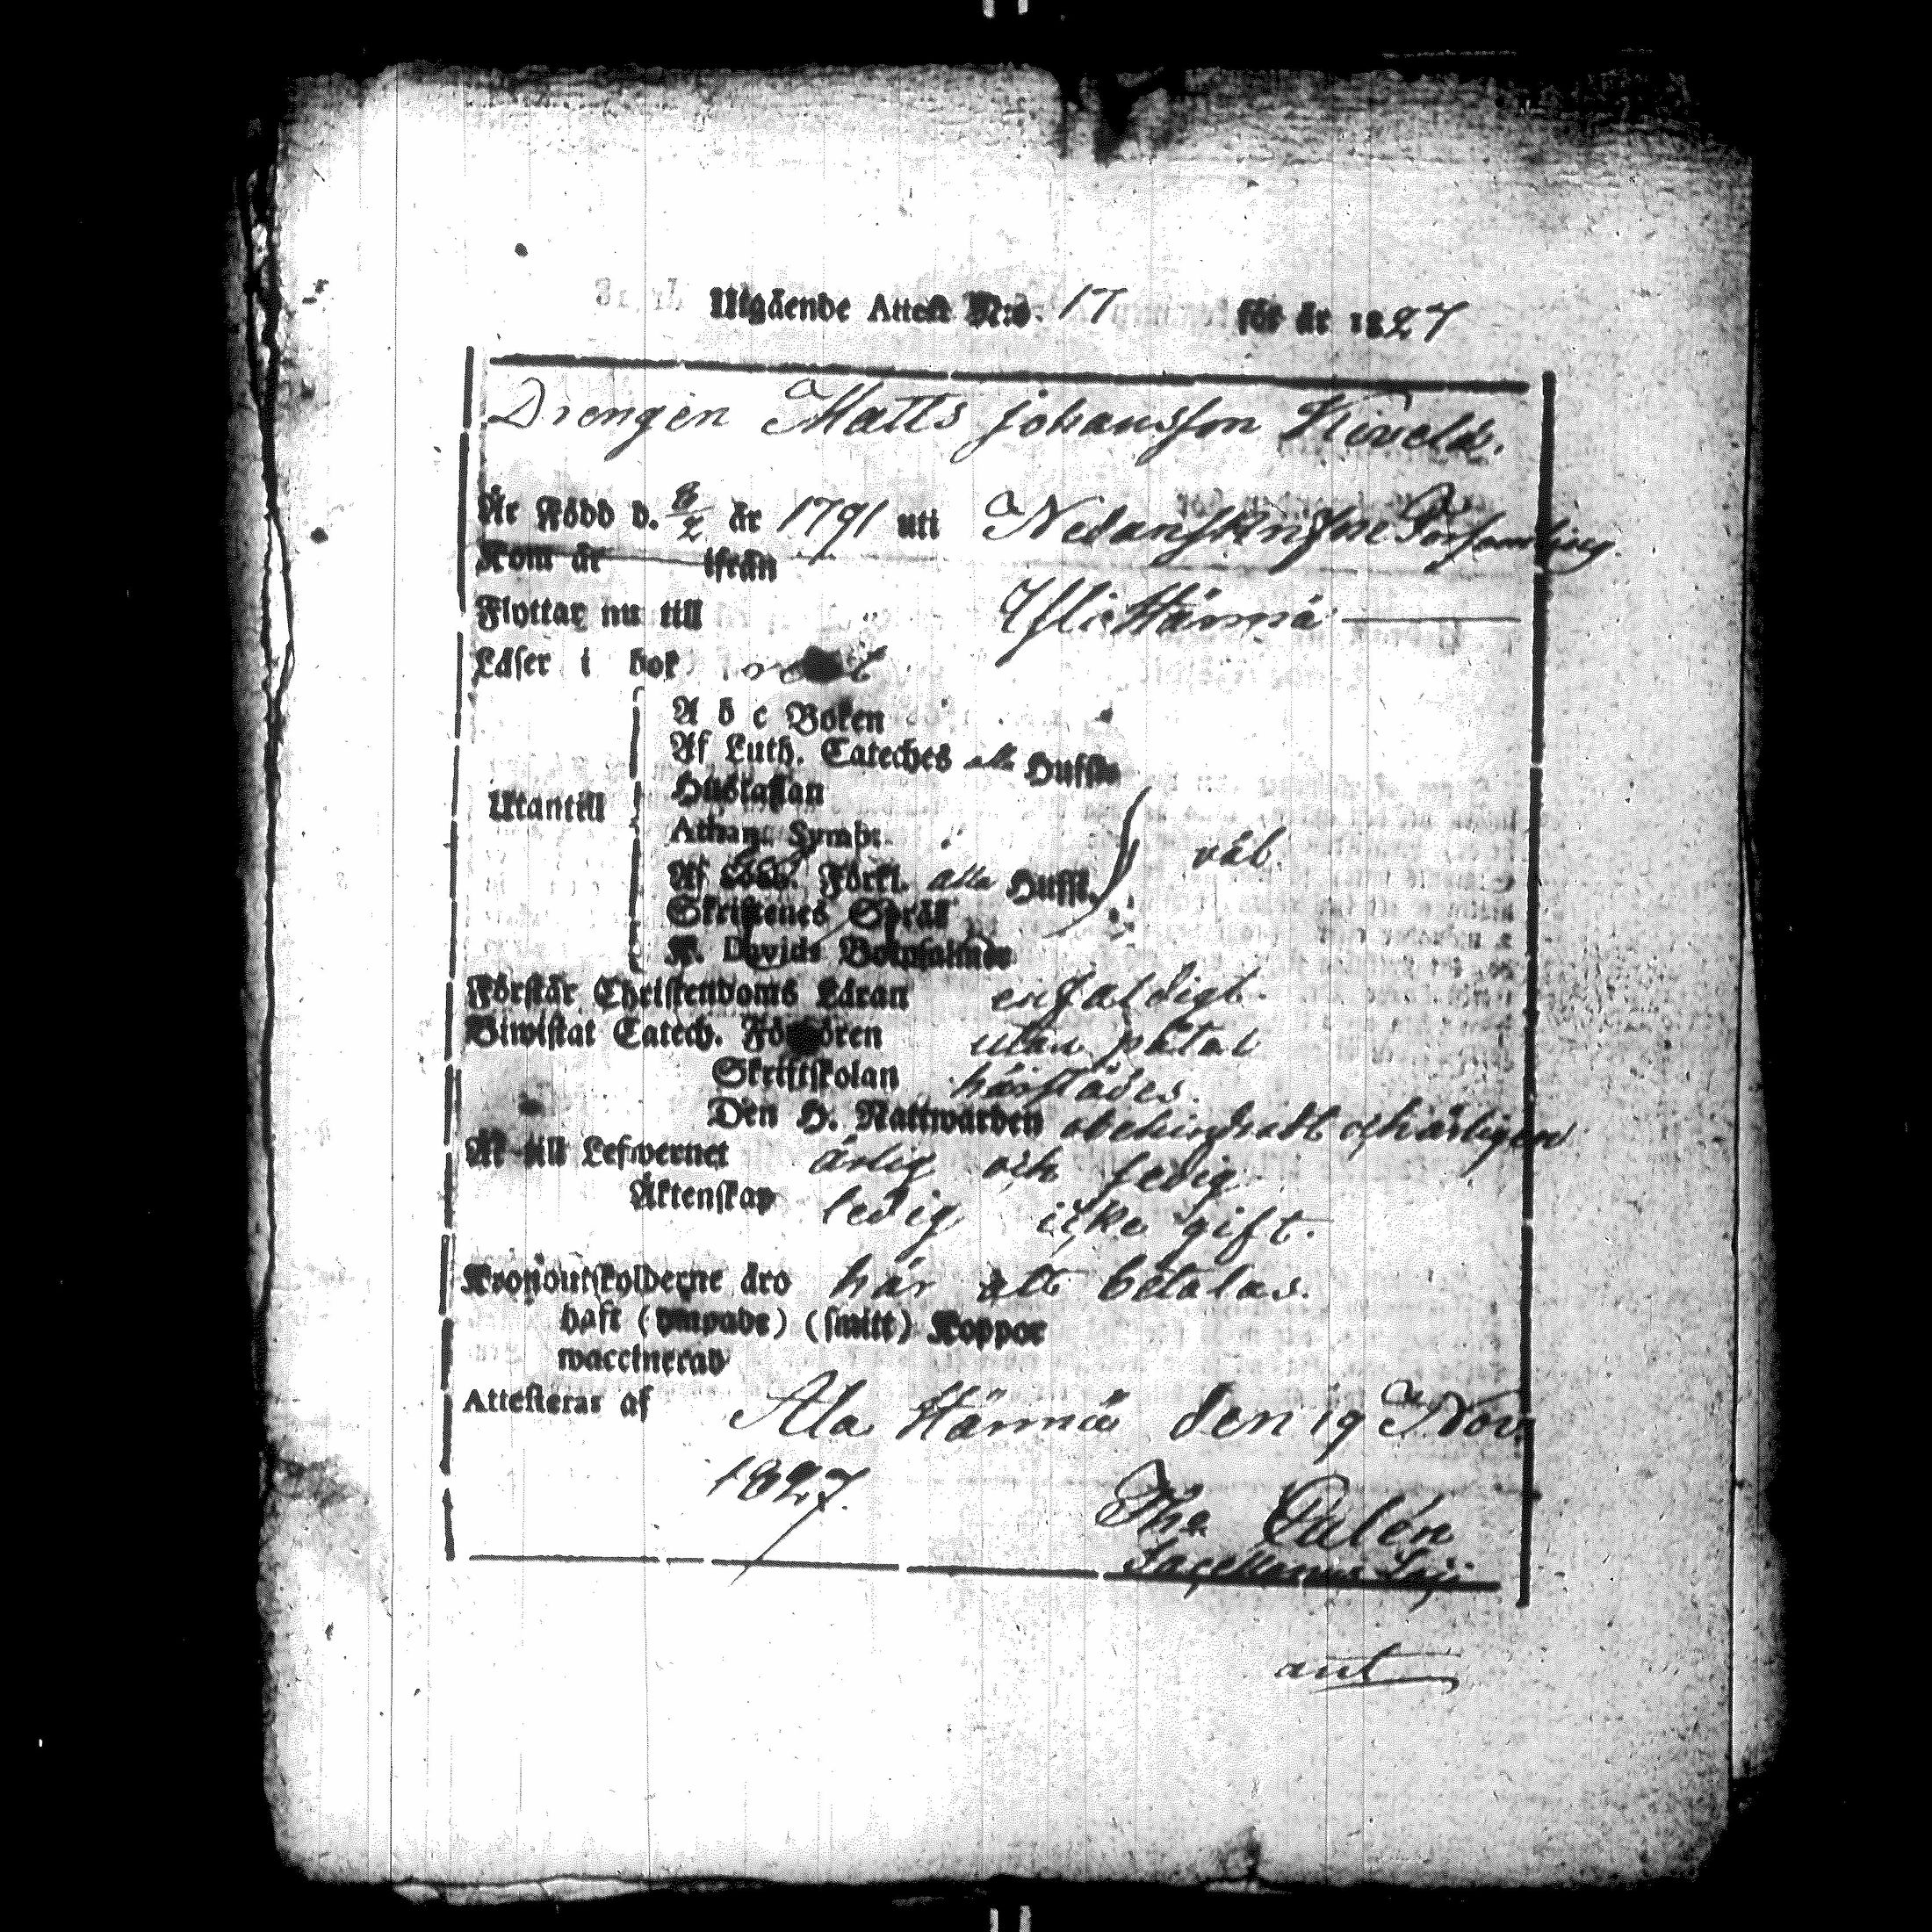 Utgående Attest N:o. 17 för år 1827
Drengen Matts Johansson Kivelä.
År Född d. 8/2 år 1791 uti Nedanskrifne Församling
Kom år ifrån
Flyttar nu till Ylihärmä
Läser i bok
A b c Boken
Af Luth. Cateches alla Hufst.
Hustaflan
Utantill
Athan. Symb. väl.
Af Förkl. alla Hufst.
Skriftenes Språk
K. Davids Botpsalmer
Förstår Christendoms Läran enfaldigt.
Biwistat Catech. Förhören utan påtal
Skriftskolan härstädes.
Den H. Nattwarden obehindradt och årligen
Är till Lefwernet ärlig och sedig
Äktenskap ledig icke gift.
Kronoutskylderne äro här att betalas.
haft (ympade) (smitt) Koppor
waccinerad
Attesteras af Ala Härmä den 19 Nov.
1827.
Joh. Dalén
Sacellanus